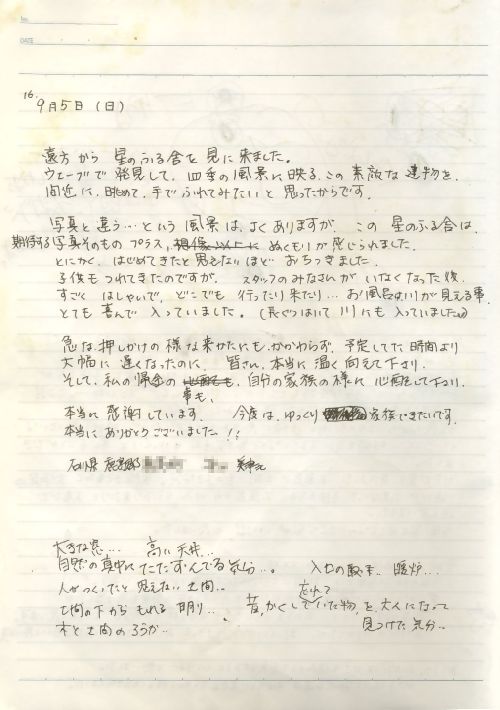 No.
DATE
16.
9月5日（日）
遠方から 星のふる舎を見に来ました。
ウェーブで発見して、四季の風景に映る、この素敵な建物を、
間近に、眺めて、手でふれてみたいと思ったからです。
写真と違う…という風景は、よくありますが、この星のふる舎は、
期待する写真そのもの プラス、想像以上に ぬくもりが感じられました。
とにかく、はじめてきたと思えないほど おちつきました。
子供もつれてきたのですが、スタッフのみなさんが いなくなった後、
すごく はしゃいで、どこでも 行ったり来たり… お風呂は川が見える事、
とても 喜んで 入っていました。(長ぐつはいて 川にも入っていました。)
急な押しかけの様な来かたにも、かかわらず、予定してた時間より
大幅に 遅くなったのに、皆さん、本当に温く向えて下さり、
そして、私の帰金の 心配も、自分の家族の様に 心配をして下さり、
事も、
本当に 感謝しています。 今度は、ゆっくり 家族できたいです。
本当に ありがとうございました!!
石川県
大きな窓… 高い天井…
自然の真中に たたずんでる気分…。 入口の 暖炉…
人がつくったと思えない土間…
忘れて
土間の下から もれる 明り… 昔、かくしていた物を、大人になって
木と土間のろうか… 見つけた気分…